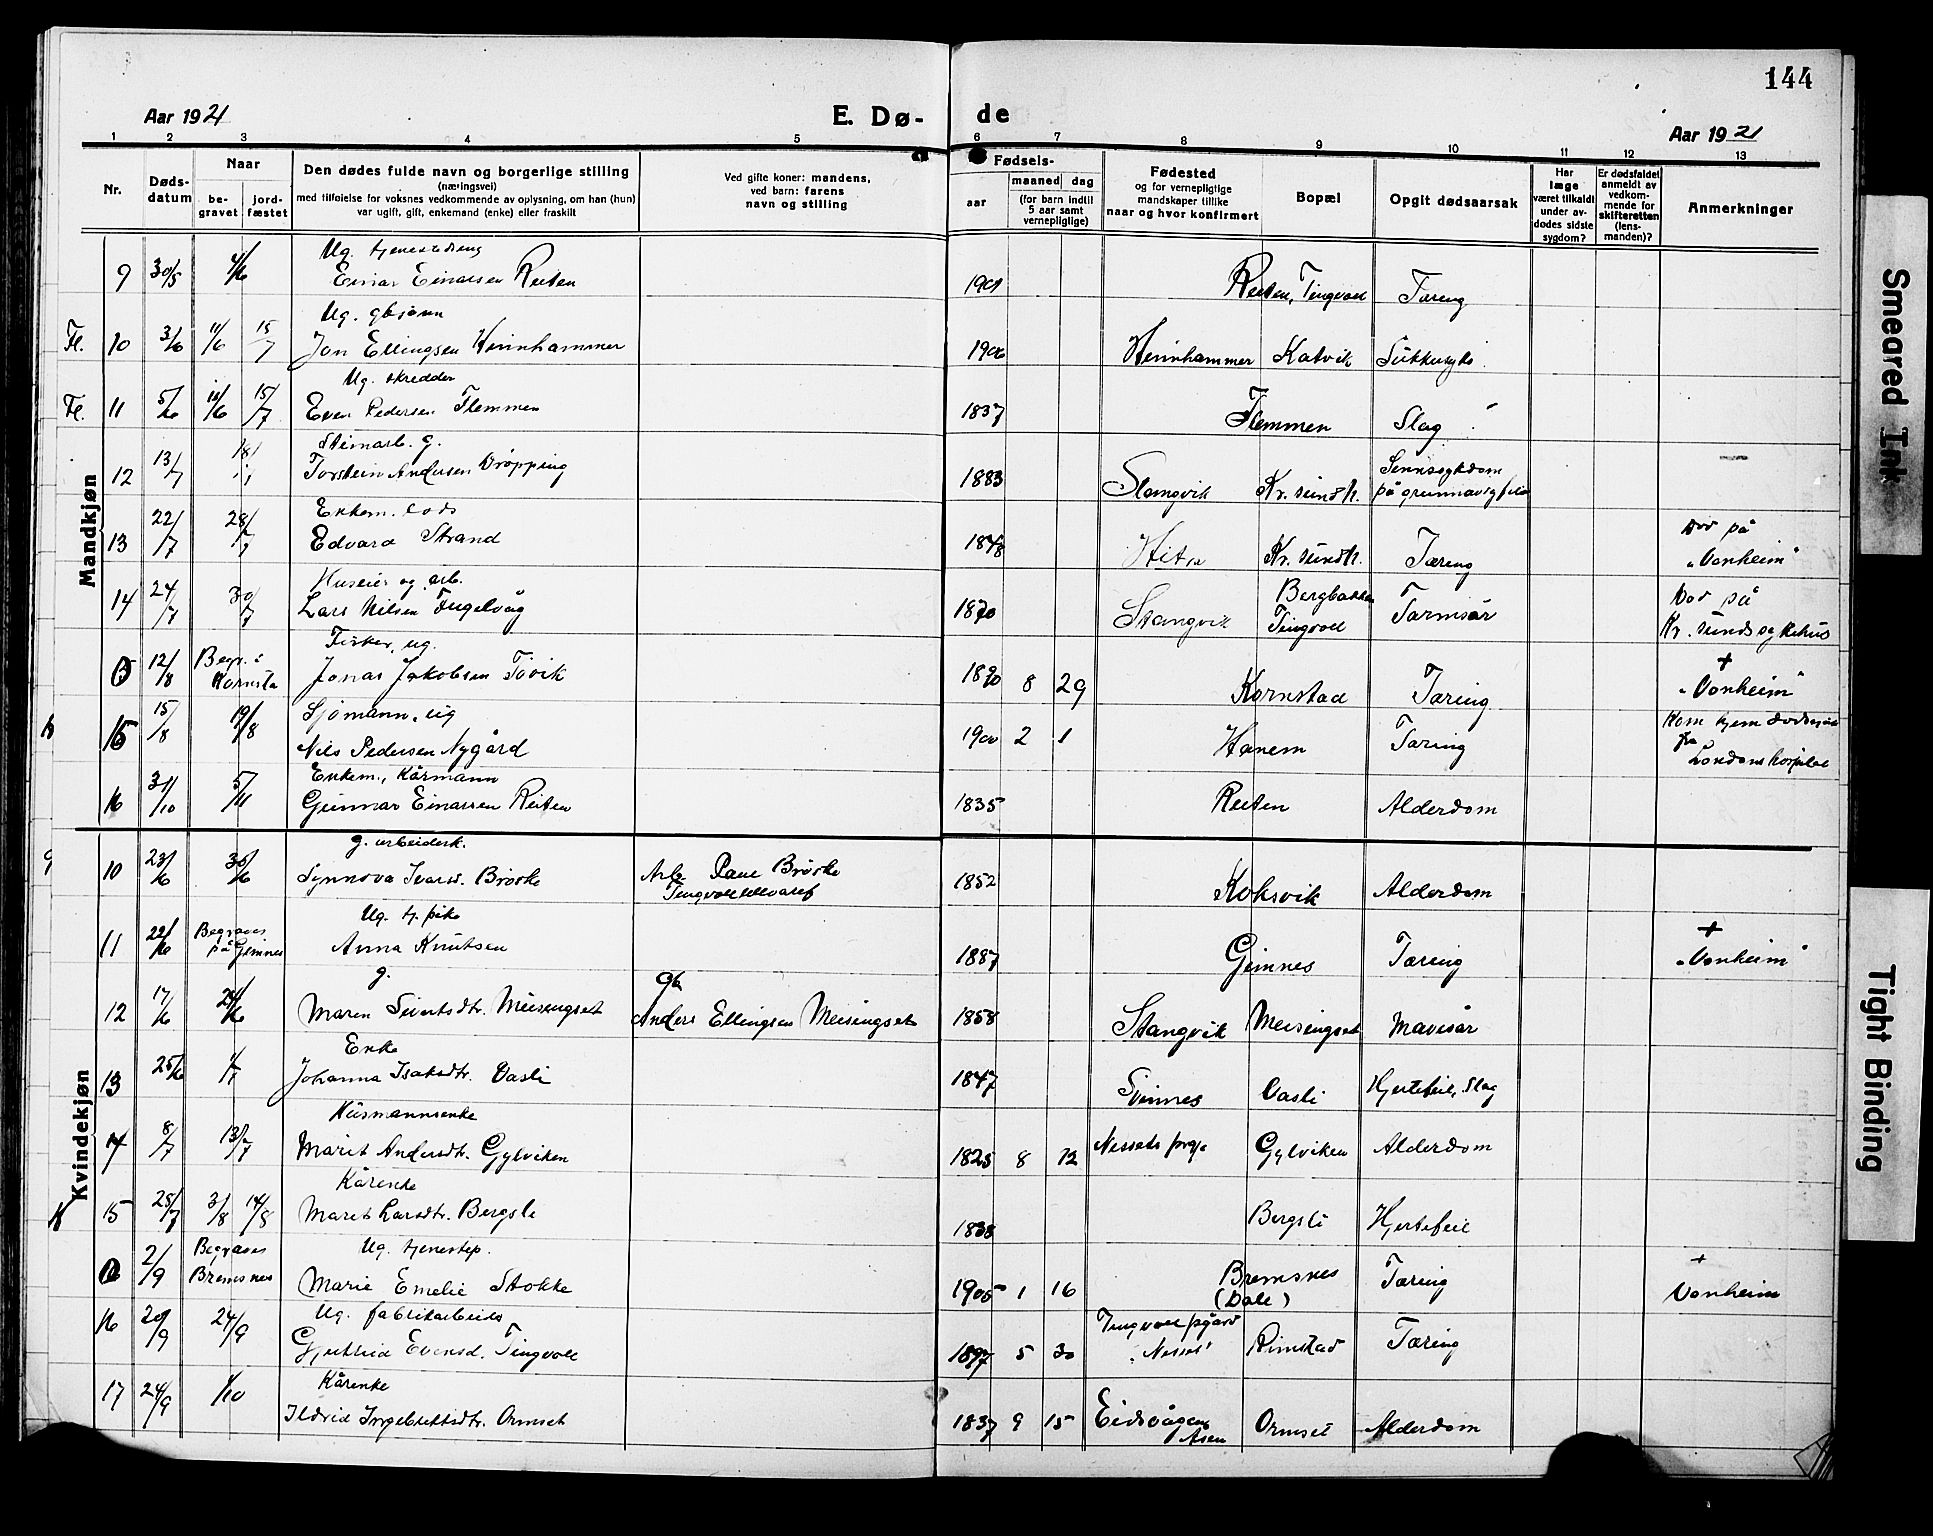 144
Aar 1921 E. Dø- de Aar 1921
1 2 3 4 5 6 7 8 9 10 11 12 13
Nr. Døds-datum Naar be-gravet jord-fæstet Den dødes fulde navn og borgerlige stilling (næringsvei) med tilføielse for voksnes vedkommende av oplysning, om han (hun) var ugift, gift, enkemand (enke) eller fraskilt Ved gifte koner: mandens, ved barn: farens navn og stilling Fødsels- aar maaned dag (for barn indtil 5 aar samt vernepligtige) Fødested og for vernepligtige mandskaper tillike naar og hvor konfirmert Bopæl Opgit dødsaarsak Har læge været tilkaldt under av-dødes sidste sygdom? Er dødsfaldet anmeldt av vedkom-mende for skifteretten (lens-manden)? Anmerkninger
Mandkjøn
Ug. tjenestedreng
9 30/5 4/6 Einar Einarsen Reiten 1901 Reiten, Tingvoll Tæring
Ug. gbsønn
Fl. 10 3/6 11/6 15/7 Jon Ellingsen Heinnhammer 1906 Heinhammer Kalvik Sukkersyke
Ug. skredder
Fl. 11 5/6 11/6 15/7 Even Pedersen Flemmen 1837 Flemmen Slag
Steinarb. g.
12 13/7 18/7 Torstein Andersen Drøpping 1883 Stangvik Kr. sund N. Sinnssykdom på
Enkem. Lods
13 22/7 28/7 Edvard Strand 1848 Hitra Kr. sund N. Tæring Død på "Vonheim"
Huseier og arb.
14 24/7 30/7 Lars Nilsen Fugelvåg 1870 Stangvik Bergbakken Tingvoll Tarmsår Død på Kr. sunds sykehus
Fisker, ug.
12/8 Begr. i Kornsta Jonas Jakobsen Tøvik 1890 8 29 Kornstad Tæring + "Vonheim"
Sjømann, ug
15 15/8 19/8 Nils Pedersen Nygård 1900 2 1 Hanem Tæring Kom hjem fra London hospital
Enkem., Kårmann
16 31/10 5/11 Gunnar Einarsen Reiten 1835 Reiten Alderdom
Kvindekjøn
g. arbeiderk.
9 10 23/6 30/6 Synnøva Ivarsd. Brøske Arb. Paul Brøske 1852 Koksvik Alderdom
Ug. tj. pike
11 22/6 Begraves på Gimnes Anna Knutsen 1887 Gimnes Tæring + "Vonheim"
g. Gb.
12 17/6 24/6 Maren Sivertsdtr. Meisingset Anders Ellingsen Meisingset 1858 Stangvik Meisingset Mavesår
Enke
13 25/6 1/7 Johanna Isaksdtr. Vasli 1847 Svinnes Vasli Hjertefeil, Slag
Husmannsenke
14 8/7 13/7 Marit Andersdtr. Gylviken 1825 8 12 Nessets prgj. Gylviken Alderdom
Kårenke
15 28/7 3/8 14/8 Marit Larsdtr. Bergsli 1838 Bergsli Hjertefeil
Ug. tjenestep.
2/9 Begraves Bremsnes Marie Emelie Stokke 1905 1 16 Bremsnes (Dale) Tæring + Vonheim
Ug. fabrikarbeids
16 20/9 24/9 Gjertrud Evensd. Tingvoll 1897 5 30 Tingvoll pgård "Nesset" Rimstad Tæring
Kårenke
17 24/9 1/10 Ildrid Ingebrettsdtr. Ormset 1837 9 15 Eidsvågen Åsen Ormset Alderdom
Smeared Ink
Tight Binding